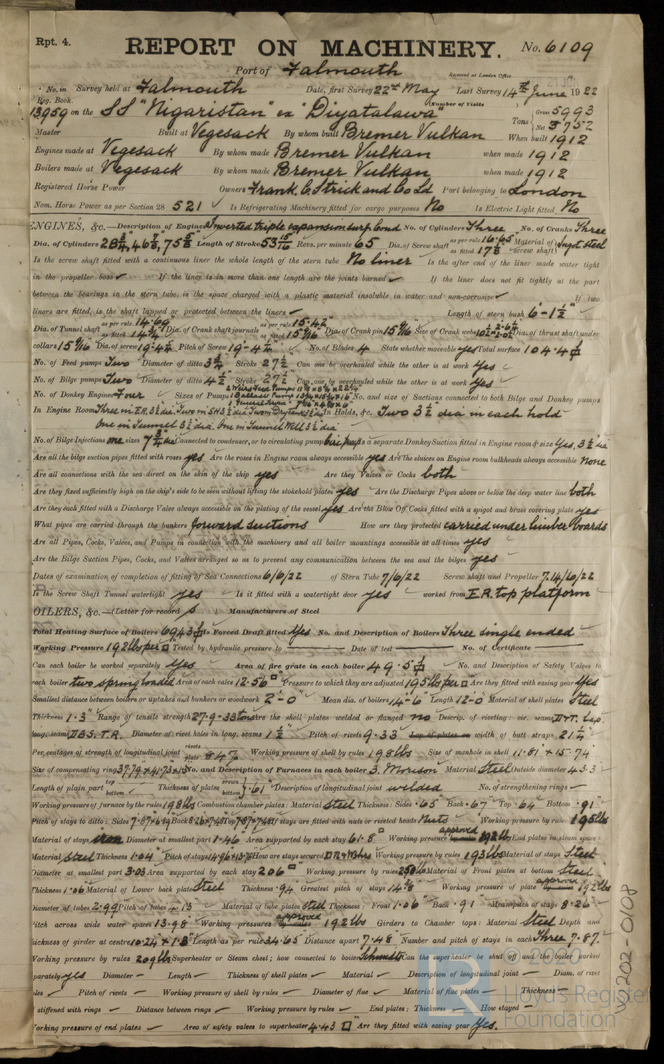 Rpt. 4.
REPORT ON MACHINERY. No. 6109
Port of Falmouth
Received at London Office
No. in Survey held at Falmouth Date, first Survey 22nd May Last Survey 14th June 1922
Reg. Book. (Number of Visits
13959 on the SS "Nigaristan" ex "Diyatalawa" Tons Gross 5993 Net 3752
Master Built at Vegesack By whom built Bremer Vulkan When built 1912
Engines made at Vegesack By whom made Bremer Vulkan when made 1912
Boilers made at Vegesack By whom made Bremer Vulkan when made 1912
Registered Horse Power Owners Frank C Strick and Co Ld Port belonging to London
Nom. Horse Power as per Section 28 521 Is Refrigerating Machinery fitted for cargo purposes No Is Electric Light fitted No
ENGINES, &c.—Description of Engines Inverted triple expansion surf. Cond No. of Cylinders Three No. of Cranks Three
Dia. of Cylinders Length of Stroke Revs. per minute 65 Dia. of Screw shaft as per rule 16.65 as fitted 17 Material of screw shaft Ingot steel
Is the screw shaft fitted with a continuous liner the whole length of the stern tube No liner Is the after end of the liner made water tight
in the propeller boss If the liner is in more than one length are the joints burned If the liner does not fit tightly at the part
between the bearings in the stern tube, is the space charged with a plastic material insoluble in water and non-corrosive If two
liners are fitted, is the shaft lapped or protected between the liners Length of stern bush 6'-1½"
Dia. of Tunnel shaft as per rule 14.69 as fitted Dia. of Crank shaft journals as per rule 15.42 as fitted 15 Dia. of Crank pin 15 Size of Crank webs Dia. of thrust shaft under
collars 15 Dia. of screw Pitch of Screw No. of Blades 4 State whether moveable yes Total surface 104.4
No. of Feed pumps Two Diameter of ditto Stroke 27½ Can one be overhauled while the other is at work Yes
No. of Bilge pumps Two Diameter of ditto 4½ Stroke 27½ Can one be overhauled while the other is at work Yes
No. of Donkey Engines Four Sizes of Pumps No. and size of Suctions connected to both Bilge and Donkey pumps
In Engine Room Three in E.R. 3½ dia. Two in SH 3½ dia In Holds, &c. Two 3½ dia in each hold
One in Tunnel 3½ dia. One in Tunnel Well 3½ dia
No. of Bilge Injections one sizes 7½ Connected to condenser, or to circulating pump Is a separate Donkey Suction fitted in Engine room & size Yes, 3½ dia
Are all the bilge suction pipes fitted with roses yes Are the roses in Engine room always accessible yes Are the sluices on Engine room bulkheads always accessible None
Are all connections with the sea direct on the skin of the ship yes Are they Valves or Cocks both
Are they fixed sufficiently high on the ship's side to be seen without lifting the stokehold plates yes Are the Discharge Pipes above or below the deep water line both
Are they each fitted with a Discharge Valve always accessible on the plating of the vessel yes Are the Blow Off Cocks fitted with a spigot and brass covering plate yes
What pipes are carried through the bunkers forward suctions How are they protected carried under limber boards
Are all Pipes, Cocks, Valves, and Pumps in connection with the machinery and all boiler mountings accessible at all times yes
Are the Bilge Suction Pipes, Cocks, and Valves arranged so as to prevent any communication between the sea and the bilges yes
Dates of examination of completion of fitting of Sea Connections 6/6/22 of Stern Tube 7/6/22 Screw shaft and Propeller 7.14/6/22
Is the Screw Shaft Tunnel watertight yes Is it fitted with a watertight door yes worked from E.R. top platform
OILERS, &c.—(Letter for record S Manufacturers of Steel
Total Heating Surface of Boilers 6943 Is Forced Draft fitted Yes No. and Description of Boilers Three single ended
Working Pressure 192 lbs per Tested by hydraulic pressure to Date of test No. of Certificate
Can each boiler be worked separately Yes Area of fire grate in each boiler 49.5 No. and Description of Safety Valves to
each boiler two spring loaded Area of each valve 12.56 Pressure to which they are adjusted 195 lbs per Are they fitted with easing gear Yes
Smallest distance between boilers or uptakes and bunkers or woodwork 2'-0" Mean dia. of boilers 14-6 Length 12-0 Material of shell plates Steel
Thickness 1.3" Range of tensile strength 27.9-33 tons Are the shell plates welded or flanged no Descrip. of riveting: cir. seams D.R. Lap
long. seams D.B.S. T.R. Diameter of rivet holes in long. seams 1½ Pitch of rivets 9.33 width of butt straps 21¼
Per centages of strength of longitudinal joint rivets plate 84% Working pressure of shell by rules 198 lbs Size of manhole in shell 11.81 x 15.74
Size of compensating ring No. and Description of Furnaces in each boiler 3. Morison Material Steel Outside diameter 43.3
Length of plain part top bottom Thickness of plates crown bottom .61 Description of longitudinal joint welded No. of strengthening rings
Working pressure of furnace by the rules 198 lbs Combustion chamber plates: Material steel Thickness: Sides .65 Back .67 Top .64 Bottom .91
Pitch of stays to ditto: Sides Back Top If stays are fitted with nuts or riveted heads Nuts Working pressure by rules 195 lbs
Material of stays iron Diameter at smallest part 1.46 Area supported by each stay 61.8 Working pressure approved 192 lbs End plates in steam space:
Material steel Thickness 1.04 Pitch of stays How are stays secured Working pressure by rules 193 lbs Material of stays Steel
Diameter at smallest part 3.03 Area supported by each stay 206 Working pressure by rules Material of Front plates at bottom Steel
Thickness 1.06 Material of Lower back plate Steel Thickness .94 Greatest pitch of stays Working pressure of plate approved 192 lbs
Diameter of tubes 2.99 Pitch of tubes Material of tube plates steel Thickness: Front 1.06 Back .91 Mean pitch of stays 8.26
Pitch across wide water spaces 13.98 Working pressures approved 192 lbs Girders to Chamber tops: Material Steel Depth and
thickness of girder at centre Length as per rule 34.65 Distance apart 7.48 Number and pitch of stays in each Three 7.87
Working pressure by rules 209 lbs Superheater or Steam chest; how connected to boiler Can the superheater be shut off and the boiler worked
parately yes Diameter Length Thickness of shell plates Material Description of longitudinal joint Diam. of rivet
les Pitch of rivets Working pressure of shell by rules Diameter of flue Material of flue plates Thickness
stiffened with rings Distance between rings Working pressure by rules End plates: Thickness How stayed
Working pressure of end plates Area of safety valves to superheater 4.43 Are they fitted with easing gear Yes.
W202-0108
© 2020
Lloyd's Register
Foundation